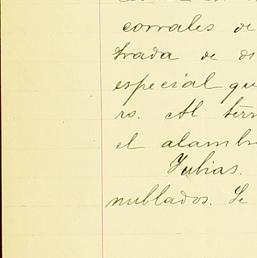 corrales de
trada de
especial qu
ro. Al tern
el alambr
Tubias.
nublados. Se